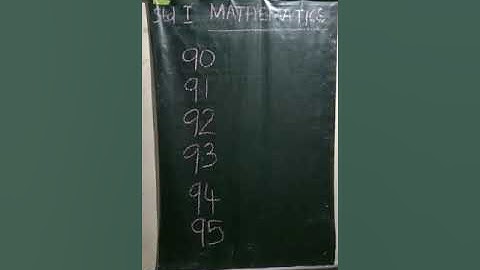 Std I MATHEMATICS
90
91
92
93
94
95